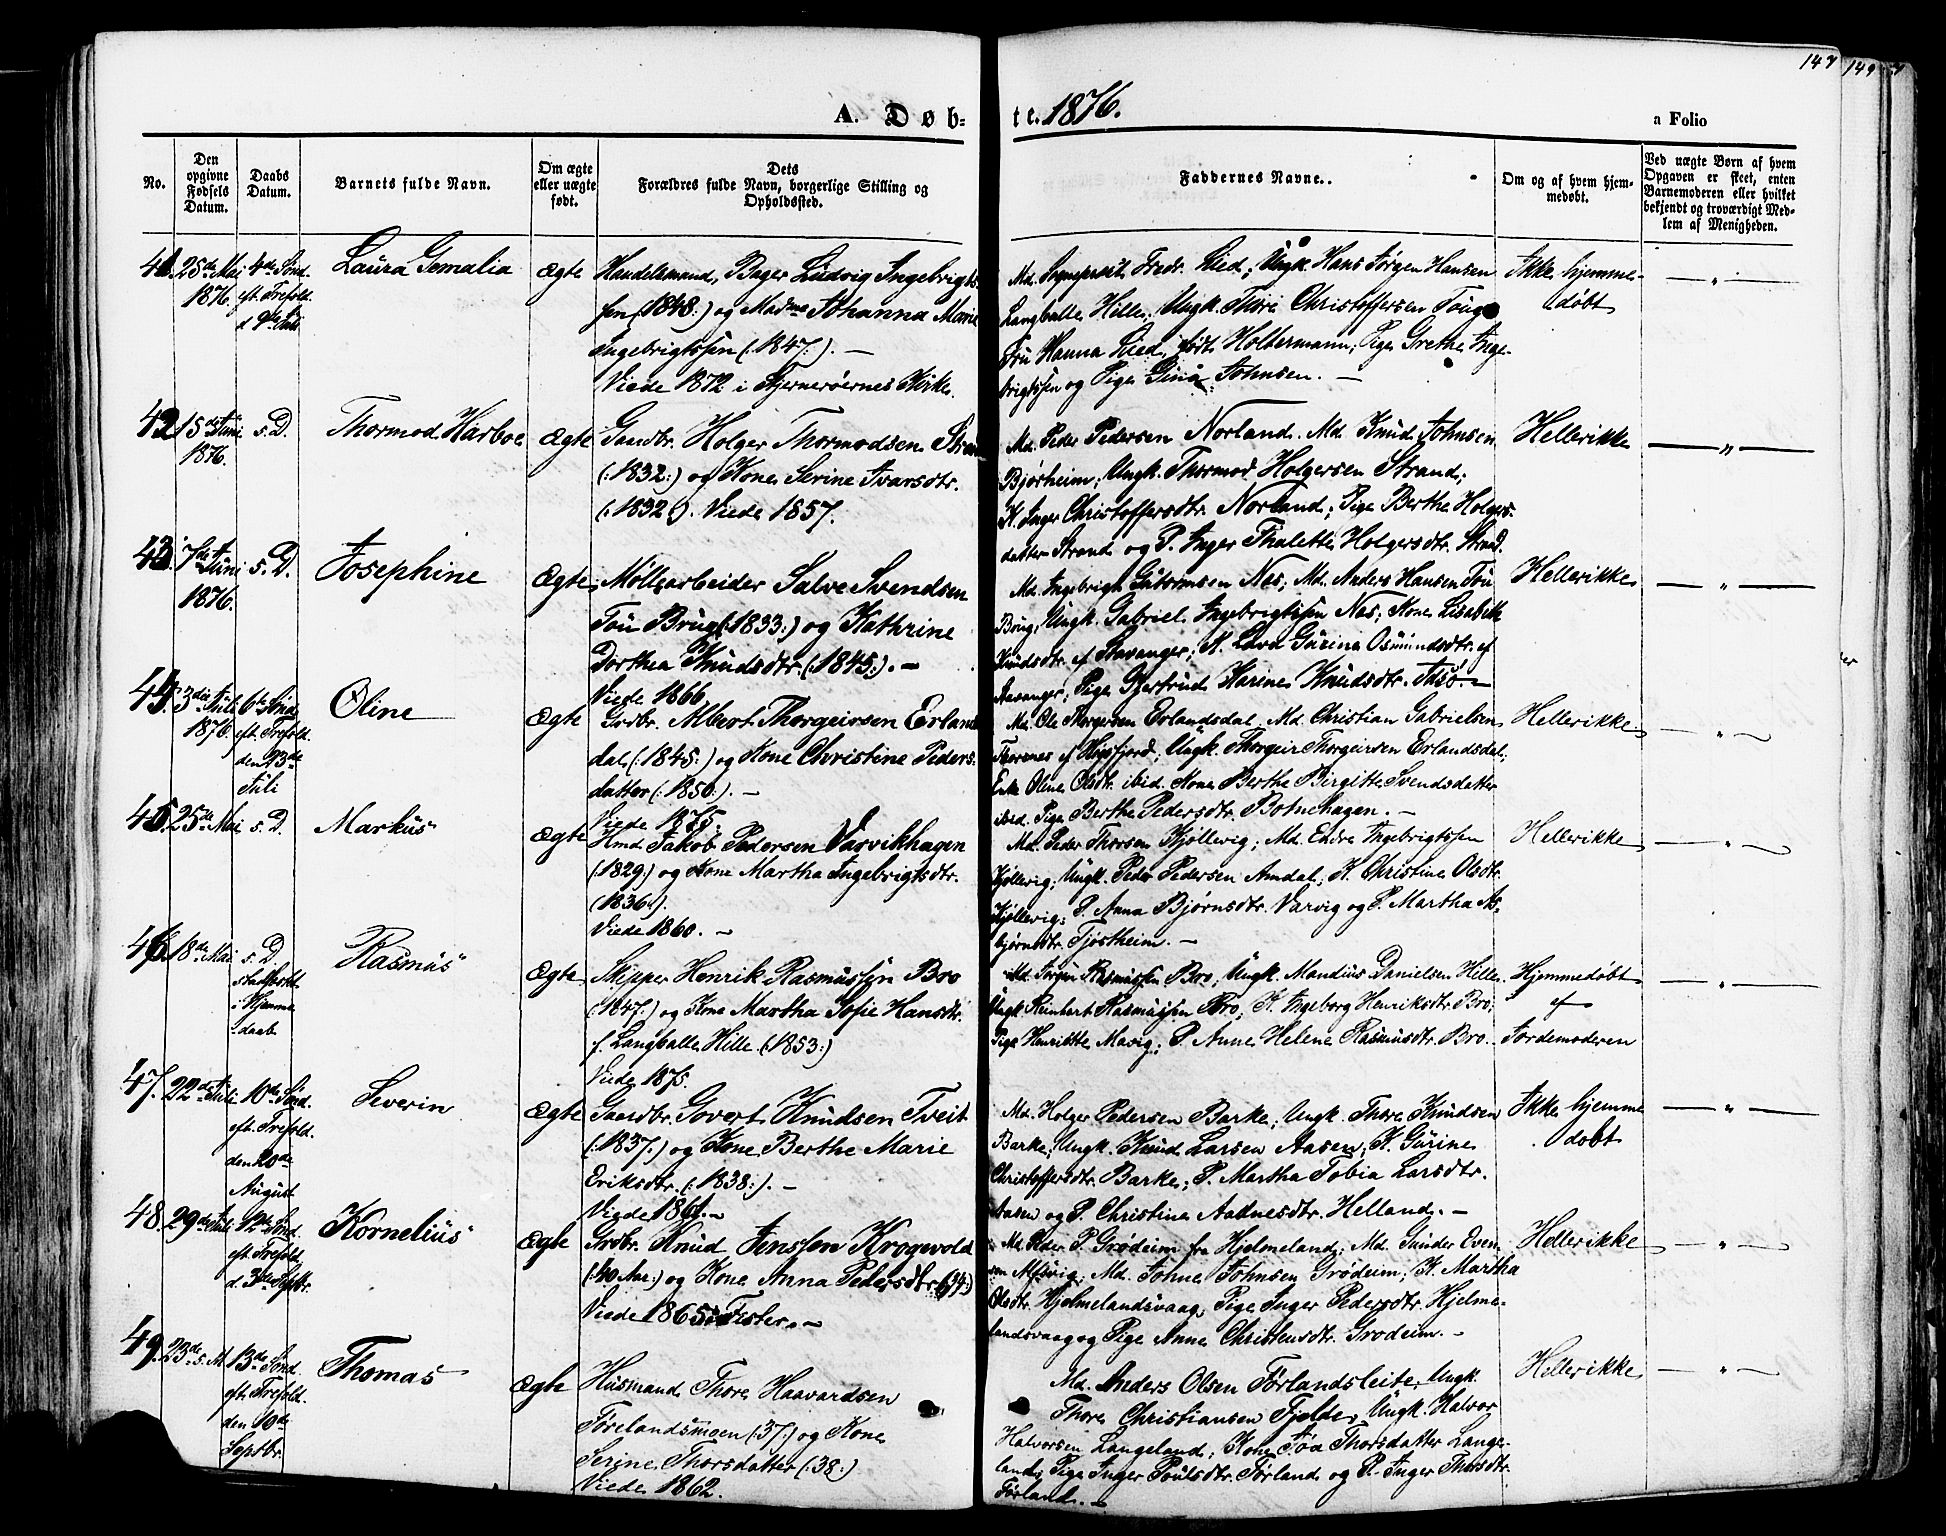 149 149
A. Døb- te. 1876.
a Folio
No.
Den opgivne Fødsels Datum.
Daabs Datum.
Barnets fulde Navn.
Om ægte eller uægte født.
Dets Forældres fulde Navn, borgerlige Stilling og Opholdssted.
Faddernes Navne.
Om og af hvem hjemmedøbt.
Ved uægte Børn af hvem Opgaven er skeet, enten Barnemoderen eller hvilket bekjendt og troværdigt Medlem af Menigheden.
41. 25de Mai 1876. 4de Sønd. eft. Trefold. d. 9de Juli
Laura Gemalia
Ægte
Handelsmand, Bager Ludvig Ingebrigts-
sen (:1848:) og Madme Johanna Marie
Ingebrigtssen (:1847:). —
Viede 1872 i Fjernerøernes Kirke.
Md. Sogneprest Fredr. Lied; Ungk. Hans Jørgen Hansen
Langballe Hille; Ungk. Thore Christoffersen Toug
Fru Hanna Lied, født Holtermann; Pige Grethe Inge-
brigtssen og Pige Gina Johnsen. —
Ikke hjemme-
døbt
— „ —
42. 15de Juni 1876. s. D.
Thormod Harboe
Ægte
Gaardbr. Holger Thormodsen Stran
(:1832:) og Kone Serine Ivarsdtr.
(:1832:). Viede 1857.
Md. Peder Pedersen Norland. Md. Knud Johnsen
Bjørheim; Ungk. Thormod Holgersen Strand;
K. Inger Christoffersdtr. Norland; Pige Berthe Holgers-
datter Strand og P. Inger Thalette Holgersdtr. Strand.
Hellerikke
— „ —
43. 7de Juni 1876. s. D.
Josephine
Ægte
Møllearbeider Salve Svendsen
Tou Brug (:1833:) og Kathrine
Dorthea Knudsdtr. (:1845:). —
Viede 1866.
Md. Ingebrigt Gutormsen Nas; Md. Anders Hansen Tou
Brug; Ungk. Gabriel Ingebrigtssen Nas; Kone Lisabeth
Knudsdtr. af Stavanger; K. Lava Gurina Osmundsdtr. af
Stavanger; Pige Gjertrud Karine Knudsdtr. —
Hellerikke
— „ —
44. 3die Juli 1876 6te Sønd. eft. Trefold. den 23de Juli
Oline
Ægte
Grdbr. Albert Thorgeirsen Erlands
dal (:1845:) og Kone Christine Peders-
datter (:1850:). —
Viede 1875.
Md. Ole Thorgersen Erlandsdal, Md. Christian Gabrielsen
af Høgsfjord; Ungk. Thorgeir Thorgeirsen Erlandsdal;
Enke Oline Olsdtr. ibid. Kone Berthe Birgitte Svendsdatter
ibid. Pige Berthe Pedersdtr. Botnehagen. —
Hellerikke
— „ —
45. 25de Mai s. D.
Markus
Ægte
Hmd Jakob Pedersen Vasvikhagen
(:1829:) og Kone Martha Ingebrigtsdtr.
(:1836:).
Viede 1860. —
Md. Peder Thorsen Kjøllevig; Md. Endre Ingebrigtssen
Kjøllevig; Ungk. Peder Pedersen Amdal; K. Christine Olsdtr.
Kjøllevig; P. Anna Bjørnsdtr. Varvig og P. Martha As-
bjørnsdtr. Tjøstheim. —
Hellerikke
— „ —
46. 18de Mai s. D. stadfæstet i Hjemme daab.
Rasmus
Ægte
Skipper Henrik Rasmussen Bro
(:1847:) og Kone Martha Sofie Hansdtr.
f. Langballe Hille. (:1853:)
Viede 1875.
Md. Jørgen Rasmussen Bro; Ungk. Mandius Danielsen Hille
Ungk. Reinhert Rasmussen Bro; K. Ingeborg Henriksdtr. Bro;
Pige Henriette Masvig; P. Anne Helene Rasmusdtr. Bro.
Hjemmedøbt
af
Jordemoderen
— „ —
47. 22de Juli 10de Sønd. eft. Trefold. den 20de August
Severin
Ægte
Gaardbr. Govert Knudsen Tveit
(:1837:) og Kone Berthe Marie
Eriksdtr. (:1838:). —
Viede 1861. —
Md. Holger Pedersen Barke; Ungk. Thore Knudsen
Barke; Ungk. Knud Larsen Aasen; K. Gurine
Christoffersdtr. Barke; P. Martha Tobia Larsdtr.
Aasen og P. Christine Aadnesdtr. Helland. —
Ikke hjemme
døbt
— „ —
48. 29de Juli 12te Sønd. eft. Trefold. d. 3die Septbr.
Kornelius
Ægte
Grdbr. Knud Jenssen Krogevold
(:40 Aar:) og Kone Anna Pedersdtr. (:34:)
Viede 1865 i Fister. —
Md. Peder P. Grødeim fra Hjelmeland; Md. Gunder Even-
sen Alsvig; Md. Johne Johnsen Grødeim; K. Martha
Olsdtr. Hjelmelandsvaag; Pige Inger Pedersdtr. Hjelme-
landsvaag og Pige Anne Christensdtr. Grodeim. —
Hellerikke
— „ —
49. 23de s. M. 13de Sønd. eft. Trefold. den 10de Septbr.
Thomas
Ægte
Husmand Thore Haavardsen
Førelandsmoen (:37:) og Kone
Serine Thorsdatter (:38:)
Viede 1862.
Md. Anders Olsen Førlandsleite, Ungk.
Thore Christiansen Fjelde, Ungk. Halvor
Halvorsen Langeland; Kone Tøa Thorsdatter Lange-
land; Pige Inger Poulsdtr. Førland og P. Inger Thorsdtr.
Førland. —
Hellerikke
— „ —